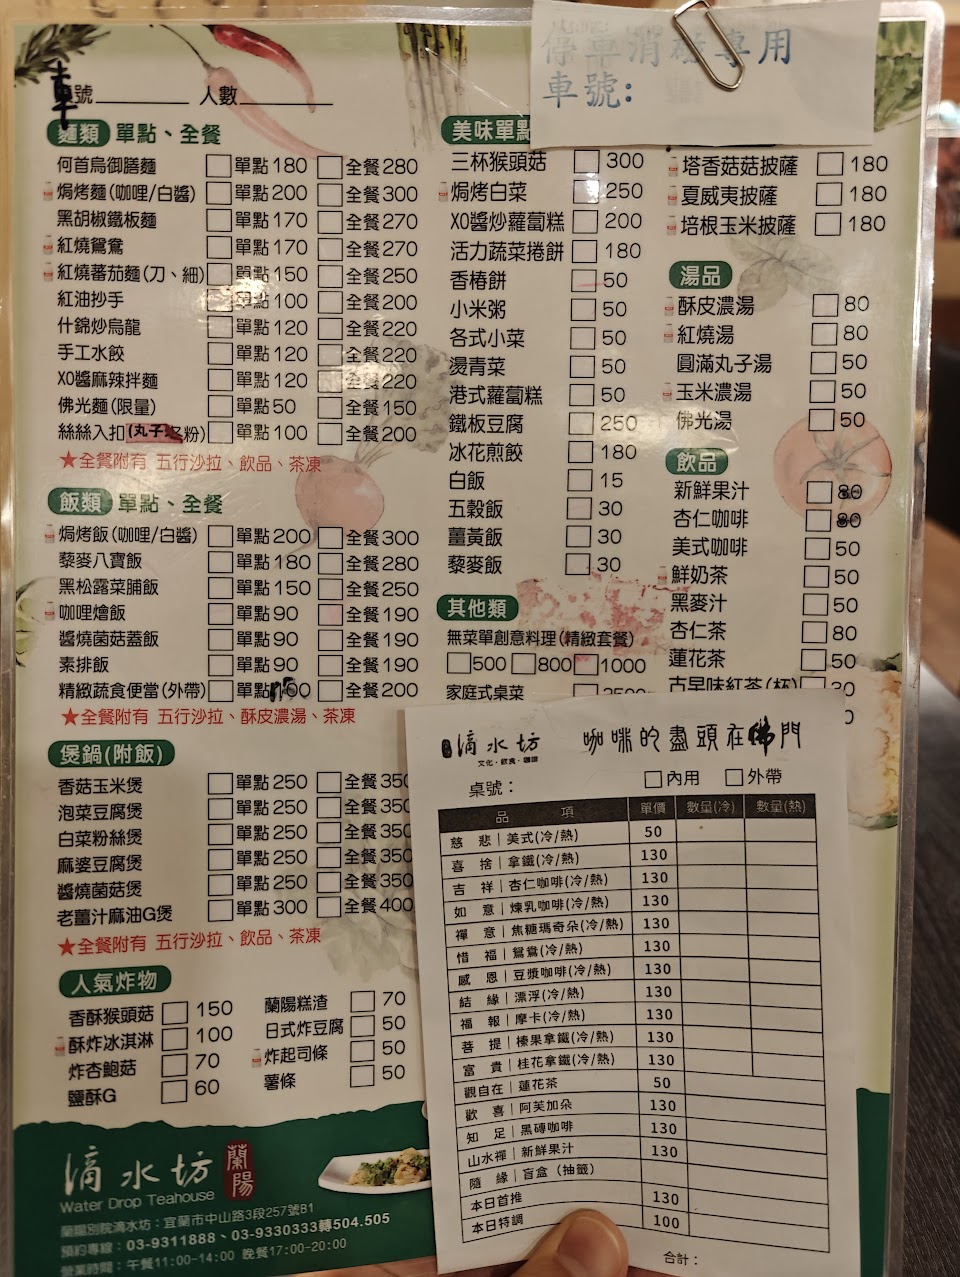 停車消磁專用
車號:
車號 人數
麵類 單點、全餐
何首烏御膳麵 單點180 全餐280
焗烤麵(咖哩/白醬) 單點200 全餐300
黑胡椒鐵板麵 單點170 全餐270
紅燒鴛鴦 單點170 全餐270
紅燒蕃茄麵(刀、細) 單點150 全餐250
紅油抄手 單點100 全餐200
什錦炒烏龍 單點120 全餐220
手工水餃 單點120 全餐220
XO醬麻辣拌麵 單點120 全餐220
佛光麵(限量) 單點50 全餐150
絲絲入扣(丸子冬粉) 單點100 全餐200
★全餐附有 五行沙拉、飲品、茶凍
飯類 單點、全餐
焗烤飯(咖哩/白醬) 單點200 全餐300
藜麥八寶飯 單點180 全餐280
黑松露菜脯飯 單點150 全餐250
咖哩燴飯 單點90 全餐190
醬燒菌菇蓋飯 單點90 全餐190
素排飯 單點90 全餐190
精緻蔬食便當(外帶) 單點 全餐200
★全餐附有 五行沙拉、酥皮濃湯、茶凍
煲鍋(附飯)
香菇玉米煲 單點250 全餐350
泡菜豆腐煲 單點250 全餐350
白菜粉絲煲 單點250 全餐350
麻婆豆腐煲 單點250 全餐350
醬燒菌菇煲 單點250 全餐350
老薑汁麻油G煲 單點300 全餐400
★全餐附有 五行沙拉、飲品、茶凍
人氣炸物
香酥猴頭菇 150
酥炸冰淇淋 100
炸杏鮑菇 70
鹽酥G 60
蘭陽糕渣 70
日式炸豆腐 50
炸起司條 50
薯條 50
美味單點
三杯猴頭菇 300
焗烤白菜 250
XO醬炒蘿蔔糕 200
活力蔬菜捲餅 180
香椿餅 50
小米粥 50
各式小菜 50
燙青菜 50
港式蘿蔔糕 50
鐵板豆腐 250
冰花煎餃 180
白飯 15
五穀飯 30
薑黃飯 30
藜麥飯 30
其他類
無菜單創意料理(精緻套餐)
500 800 1000
家庭式桌菜 3500
塔香菇菇披薩 180
夏威夷披薩 180
培根玉米披薩 180
湯品
酥皮濃湯 80
紅燒湯 80
圓滿丸子湯 50
玉米濃湯 50
佛光湯 50
飲品
新鮮果汁 80
杏仁咖啡 80
美式咖啡 50
鮮奶茶 50
黑麥汁 50
杏仁茶 80
蓮花茶 50
古早味紅茶(杯) 30
滴水坊 咖啡的盡頭在佛門
文化·飲食·咖啡
桌號： 內用 外帶
品項 單價 數量(冷) 數量(熱)
慈悲|美式(冷/熱) 50
喜捨|拿鐵(冷/熱) 130
吉祥|杏仁咖啡(冷/熱) 130
如意|煉乳咖啡(冷/熱) 130
禪意|焦糖瑪奇朵(冷/熱) 130
惜福|鴛鴦(冷/熱) 130
感恩|豆漿咖啡(冷/熱) 130
結緣|漂浮(冷/熱) 130
福報|摩卡(冷/熱) 130
菩提|榛果拿鐵(冷/熱) 130
富貴|桂花拿鐵(冷/熱) 130
觀自在|蓮花茶 50
歡喜|阿芙加朵 130
知足|黑磚咖啡 130
山水禪|新鮮果汁 130
隨緣|盲盒(抽籤)
本日首推 130
本日特調 100
合計：
滴水坊 蘭陽
Water Drop Teahouse
蘭陽別院滴水坊：宜蘭市中山路3段257號B1
預約專線：03-9311888、03-9330333轉504.505
營業時間：午餐11:00-14:00 晚餐17:00-20:00